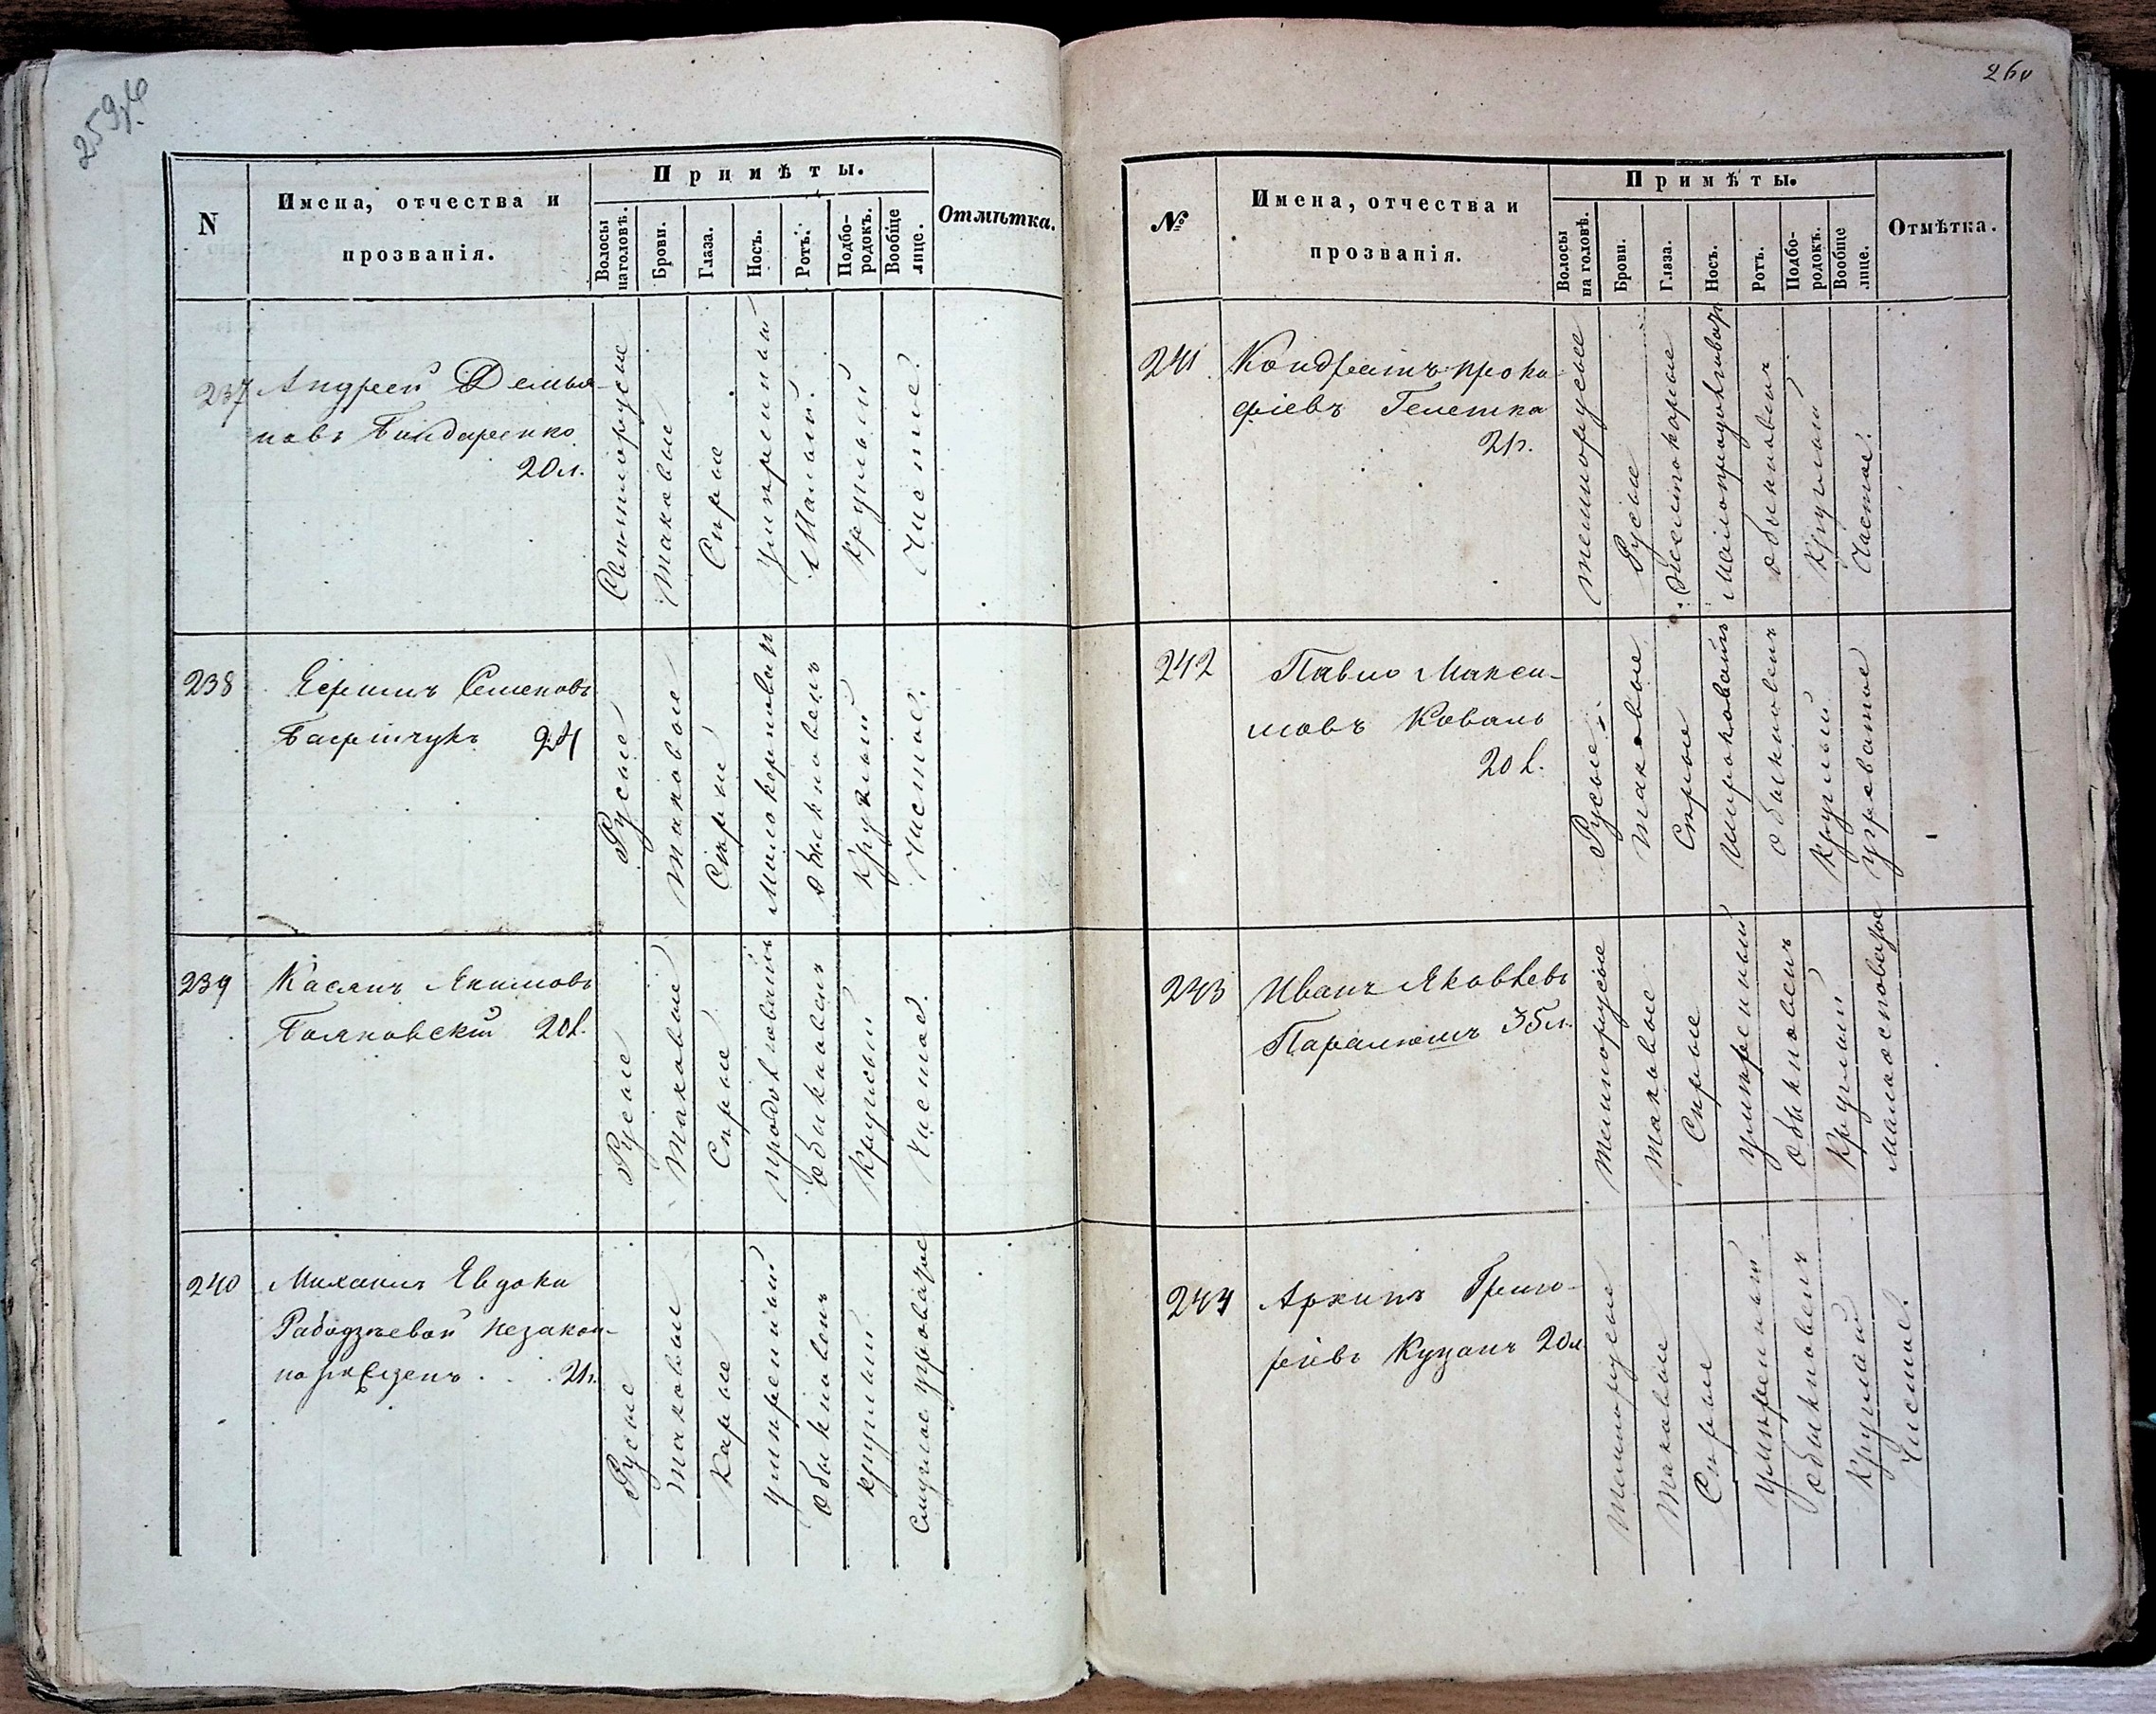 259об
N
Имена, отчества и
прозванія.
Примѣты.
Волосы
на головѣ.
Брови.
Глаза.
Носъ.
Ротъ.
Подбо-
родокъ.
Вообще
лице.
Отмѣтка.
237 Андрей Демья-
новъ Бондаренко
20 л.
Свѣтлорусые
таковые
Сѣрые
умѣренный
Малый.
круглый
Чистое.
238 Семеновъ
24
Русые
таковые
Сѣрые
обыкновенъ
круглый
Чистое.
239 Касянъ Якимовъ
Бояновскій 20 л.
Русые
таковые
Сѣрые
продолговатый
обыкновенъ
круглый
Чистое.
240 Михаилъ Евдоки
незакон-
норожденъ . . 21 г.
Русые
таковые
Карые
умѣренный
обыкновенъ
круглый
Смуглое
260
№
Имена, отчества и
прозванія.
Примѣты.
Волосы
на головѣ.
Брови.
Глаза.
Носъ.
Ротъ.
Подбо-
родокъ.
Вообще
лице.
Отмѣтка.
241 Кондратъ Проко
фіевъ Гелетка
21 г.
темнорусые
Русые
Желтокорые
обыкновенъ
Круглый
Чистое.
242 Павло Макси-
мовъ Коваль
20 л.
Русые
таковые
Сѣрые
широковатый
обыкновенъ
Круглый
угреватое
243 Иванъ Яковлевъ
35 л.
темнорусые
таковые
Сѣрые
умѣренный
обыкновенъ
Круглый
244 Архипъ Григо-
ріевъ Куцанъ 20 л
темнорусые
таковые
Сѣрые
умѣренный
обыкновенъ
Круглый
Чистое.